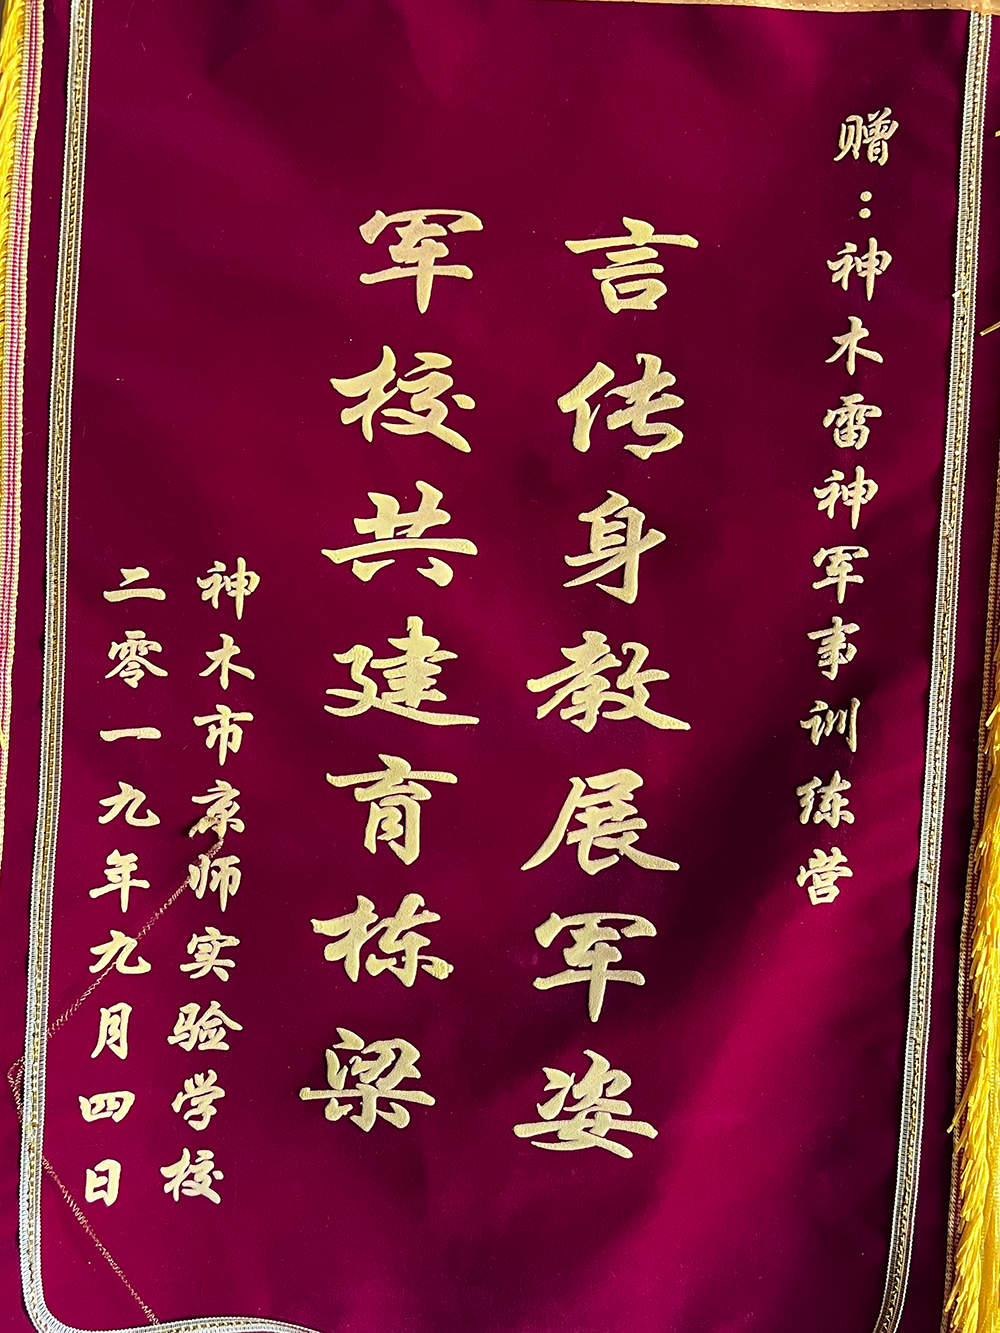 赠：神木雷神军事训练营
言传身教展军姿
军校共建育栋梁
神木市京师实验学校
二零一九年九月四日